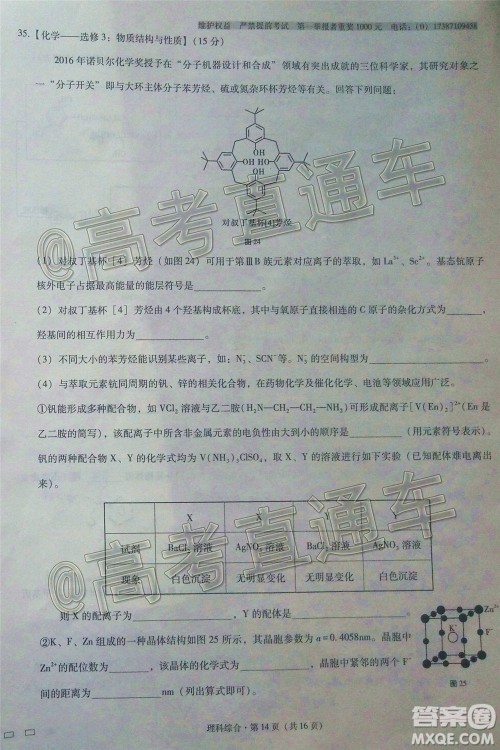 维护权益 严禁提前考试 第一举报者重奖1000元 电话：(0)
35.【化学——选修3：物质结构与性质】(15分)
2016年诺贝尔化学奖授予在“分子机器设计和合成”领域有突出成就的三位科学家，其研究对象之
一“分子开关”即与大环主体分子苯芳烃、硫或氮杂环杯芳烃等有关。回答下列问题：
OH
OH HO
OH
对叔丁基杯[4]芳烃
图24
(1) 对叔丁基杯［4］芳烃（如图24）可用于第ⅢB族元素对应离子的萃取，如La³⁺、Sc²⁺。基态钪原子
核外电子占据最高能量的能层符号是________。
(2) 对叔丁基杯［4］芳烃由4个羟基构成杯底，其中与氧原子直接相连的C原子的杂化方式为________，
羟基间的相互作用力为________。
(3) 不同大小的苯芳烃能识别某些离子，如：N₃⁻、SCN⁻等。N₃⁻的空间构型为________。
(4) 与萃取元素钪同周期的钒、锌的相关化合物，在药物化学及催化化学、电池等领域应用广泛。
①钒能形成多种配合物，如VCl₂溶液与乙二胺(H₂N—CH₂—CH₂—NH₂)可形成配离子[V(En)₂]²⁺(En是
乙二胺的简写)，该配离子中所含非金属元素的电负性由大到小的顺序是________（用元素符号表示）。
钒的两种配合物X、Y的化学式均为V(NH₃)₃ClSO₄，取X、Y的溶液进行如下实验（已知配体难电离出
来）。
X X Y Y
试剂 BaCl₂溶液 AgNO₃溶液 BaCl₂溶液 AgNO₃溶液
现象 白色沉淀 无明显变化 无明显变化 白色沉淀
则X的配离子为________，Y的配体是________。
②K、F、Zn组成的一种晶体结构如图25所示，其晶胞参数为a=0.4058nm。晶胞中
Zn²⁺的配位数为________，该晶体的化学式为________，晶胞中紧邻的两个F⁻
间的距离为________nm（列出算式即可）。
Zn²⁺
K⁺
F⁻
图25
理科综合·第14页（共16页）
@高考直通车
@高考直通车
答案圈
MXQE.COM